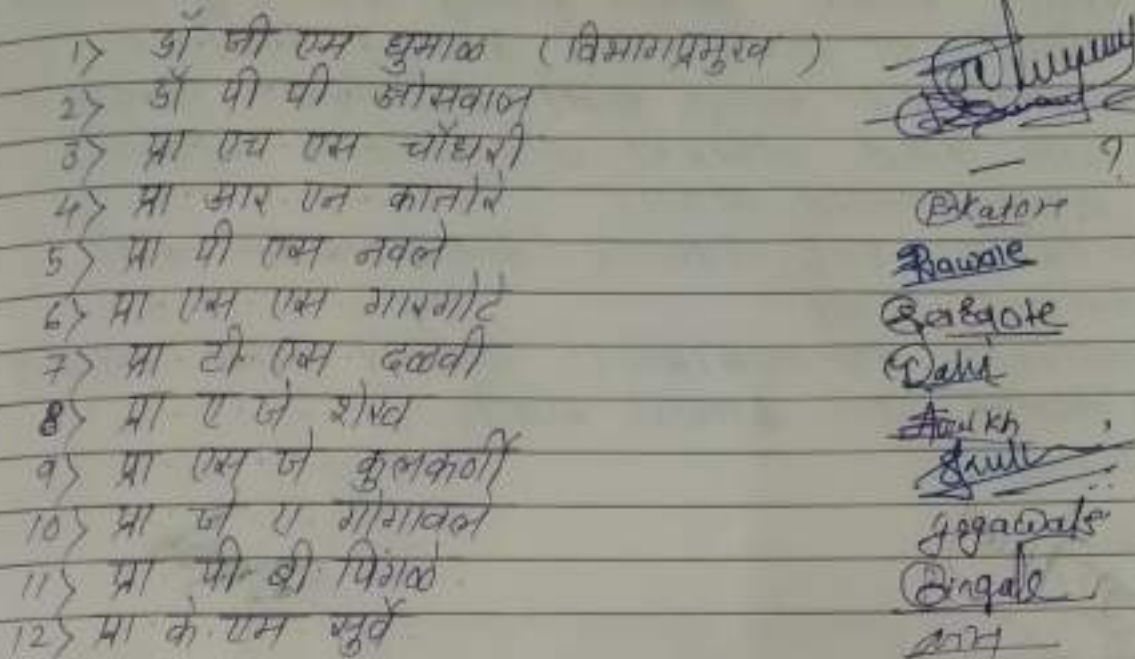 1> डॉ जी एम धुमाळ (विभागप्रमुख)
2> डॉ पी पी ओसवाल
3> प्रा एच एस चौधरी — ?
4> प्रा आर एन कातोरे Bkatore
5> प्रा पी एस नवले Bawale
6> प्रा एस एस गारगोटे Gargote
7> प्रा टी एस दळवी Dalvi
8> प्रा ए जे शेख
9> प्रा एस जे कुलकर्णी
10> प्रा जे ए गोगावले gogawale
11> प्रा पी बी पिंगळे Pingale
12> प्रा के एम सुर्वे